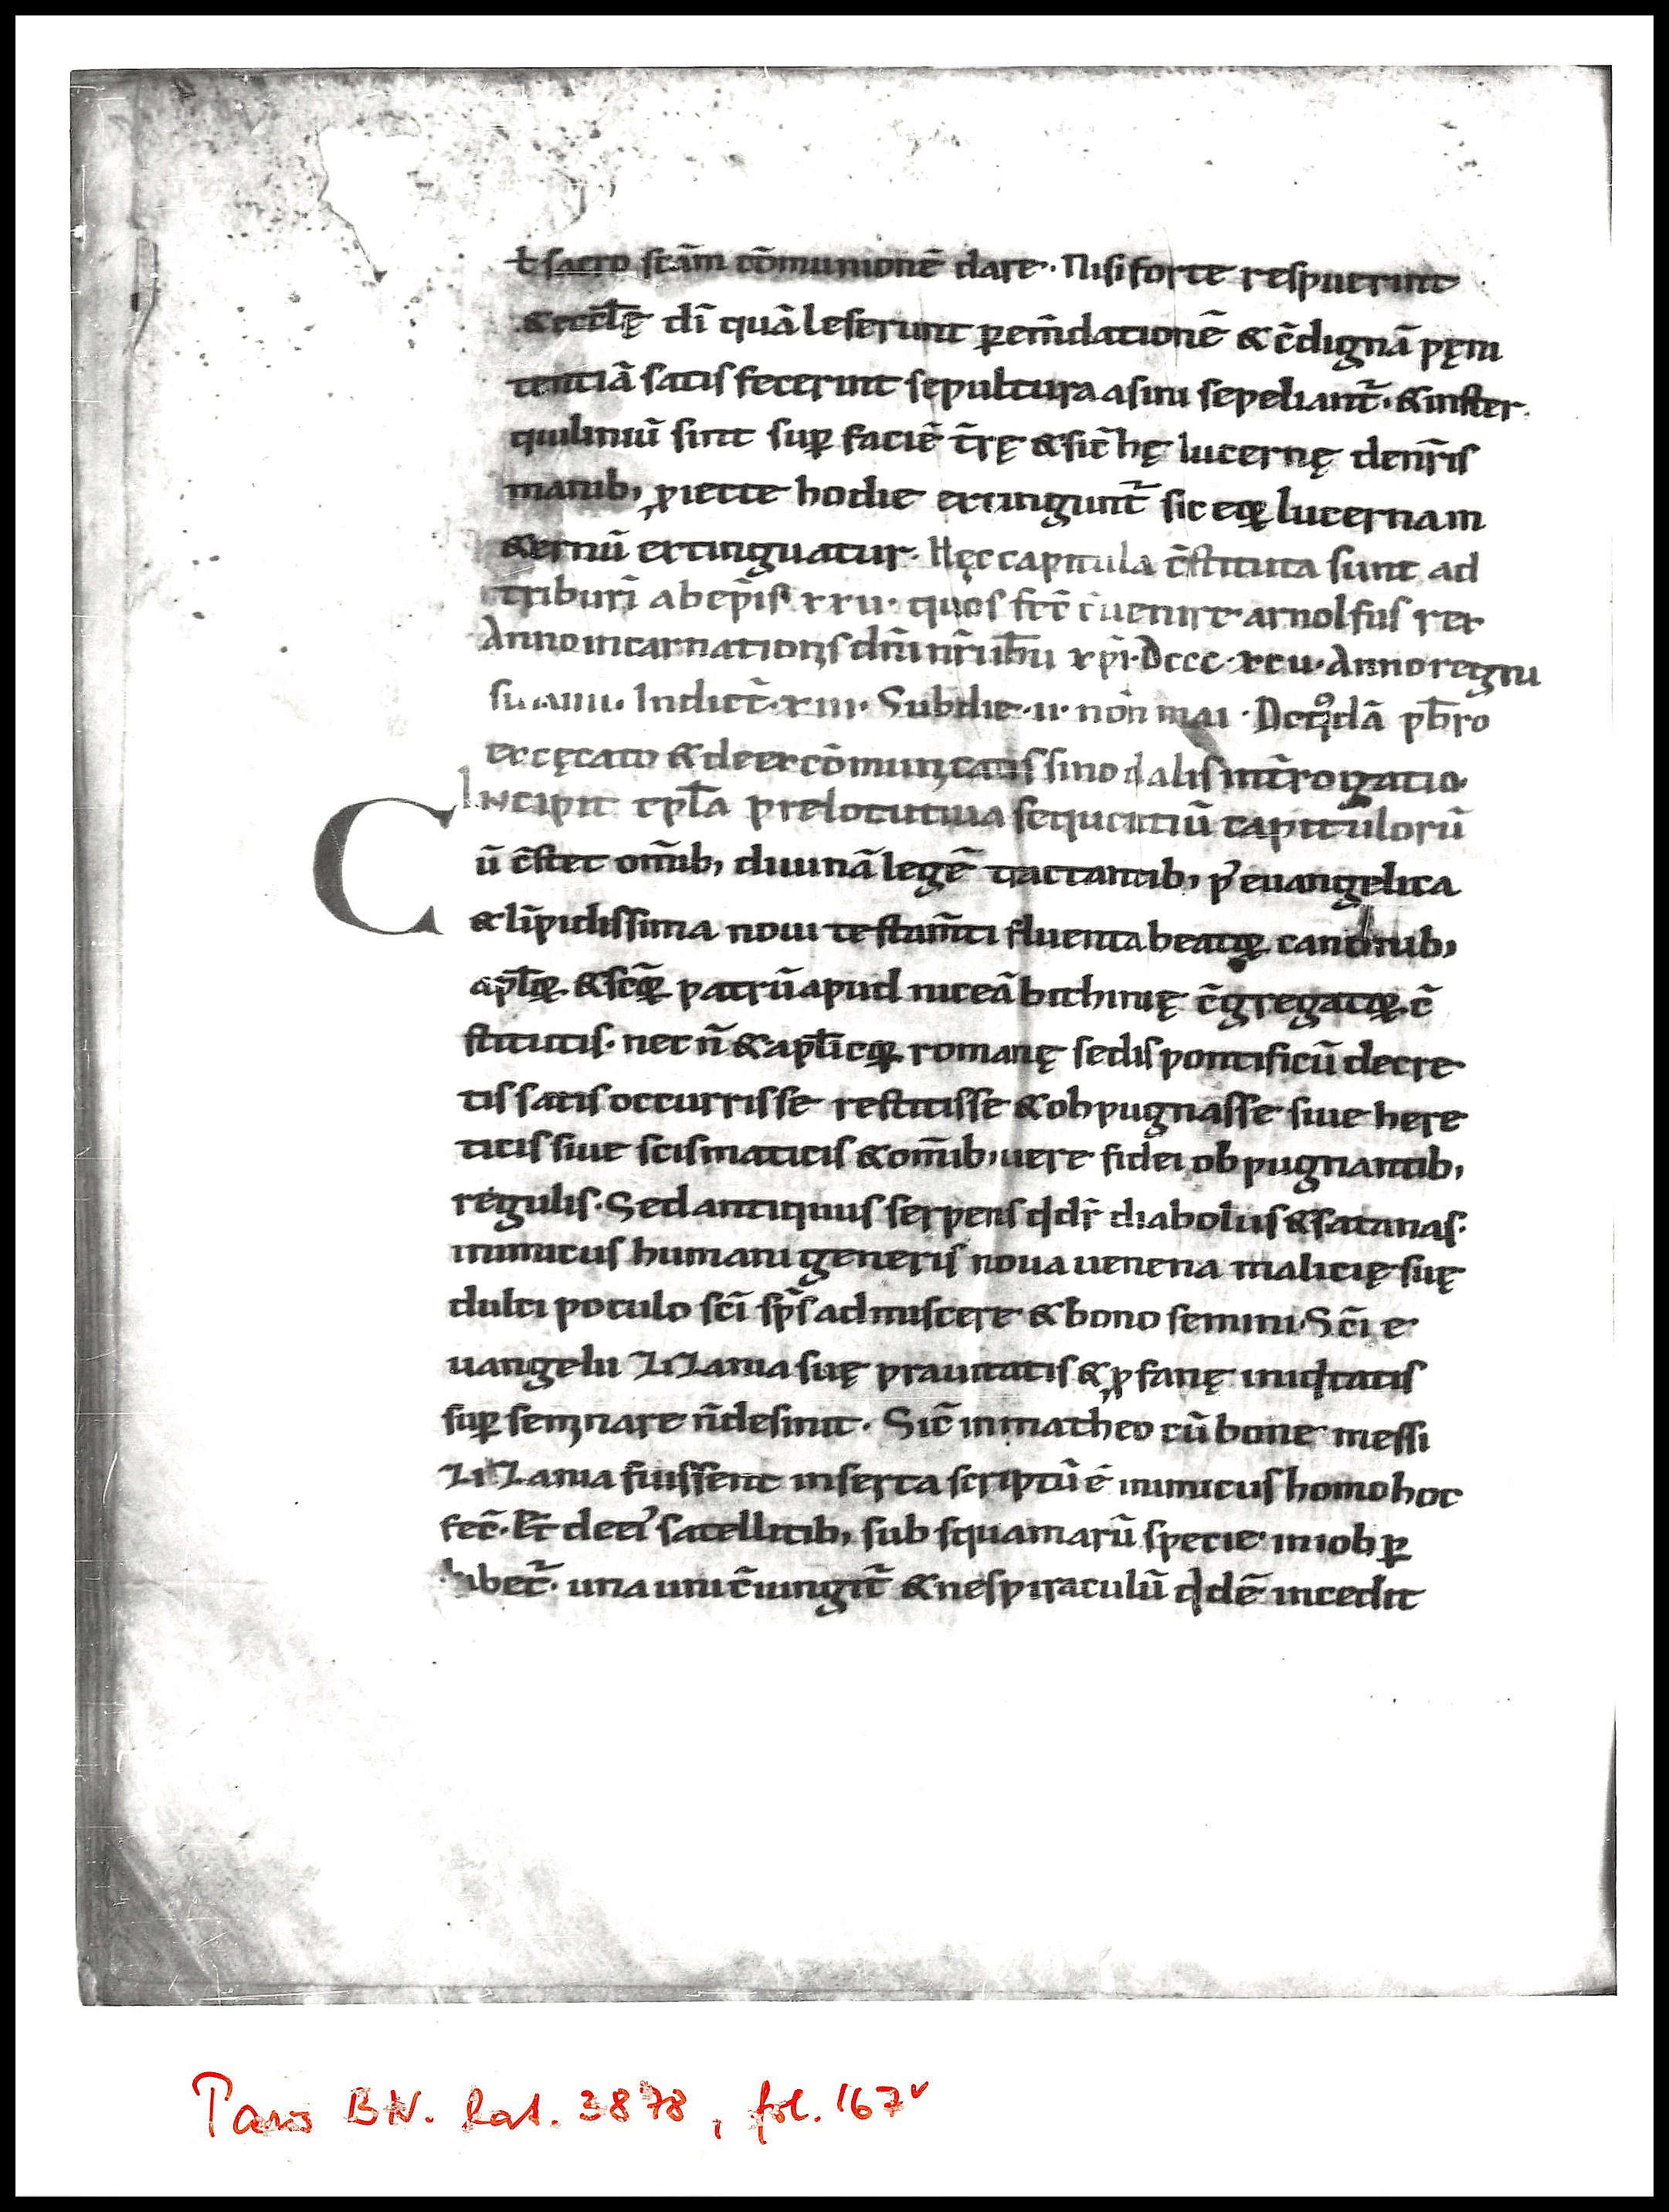 ł sacro scām cōmunionē dare. Nisi forte respuerint
& eccłę dī quā leserunt ꝑ em̄dationē & c̄dignā pęni
tentiā satisfecerint sępultura asini sepeliant̄. & inster
quiliniū sint suꝑ faciē t̄rę & sic̄ hę lucernę de nr̄is
manib; ꝓiecte hodie extingunt̄ sic eoꝝ lucernam
&ernū extinguatur. Hęc capitula c̄stituta sunt ad
triburī ab ep̄is xxu. quos fec̄ c̄uenire arnolfus rex
Anno incarnationis dn̄i nr̄i ihu xp̄i. Dccc. xcu. Anno regni
sui .uiii. Indict̄. xiii. Sub die .ii. non̄ mai. De qͦdā pb̄ro
excęcato & de excōmunicatis sinodalis int̄rogatio.
Incipit cpła prelocutiua sequentiū capitulorū
Cū c̄stet om̄ib; diuinā legē tractantib; p᷒ euangelica
& līpidissima noui testam̄ti fluenta beatoꝝ canonib;
apłoꝝ & sc̄oꝝ patrū apud niceā bithinię c̄gregatoꝝ c̄
stitutis. nec n̄ & apłicoꝝ romanę sedis pontificū decre
tis satis occurrisse restitisse & obpugnasse siue here
ticis siue scismaticis & om̄ib; uere fidei obpugnantib;
regulis. Sed antiquus serpens q̇ dr̄ diabolus & satanas.
inimicus humani generis noua uenena malicię suę
dulci poculo sc̄i sp̄s admiscere & bono semini. Sc̄i e
uangelii zizania suę prauitatis & ꝓfanę iniq̇tatis
suꝑseminare n̄ desinit. Sic̄ in matheo cū bone messi
zizania fuissent inserta scriptū ē inimicus homo hoc
fec̄. Et̄ de ei᷒ satellitib; sub squamarū specie in iob ꝑ
hibet̄. una uni c̄iungit̄ & ne spiraculū q̇dē incedit
Paris BN. Lat. 3878, fol. 167v